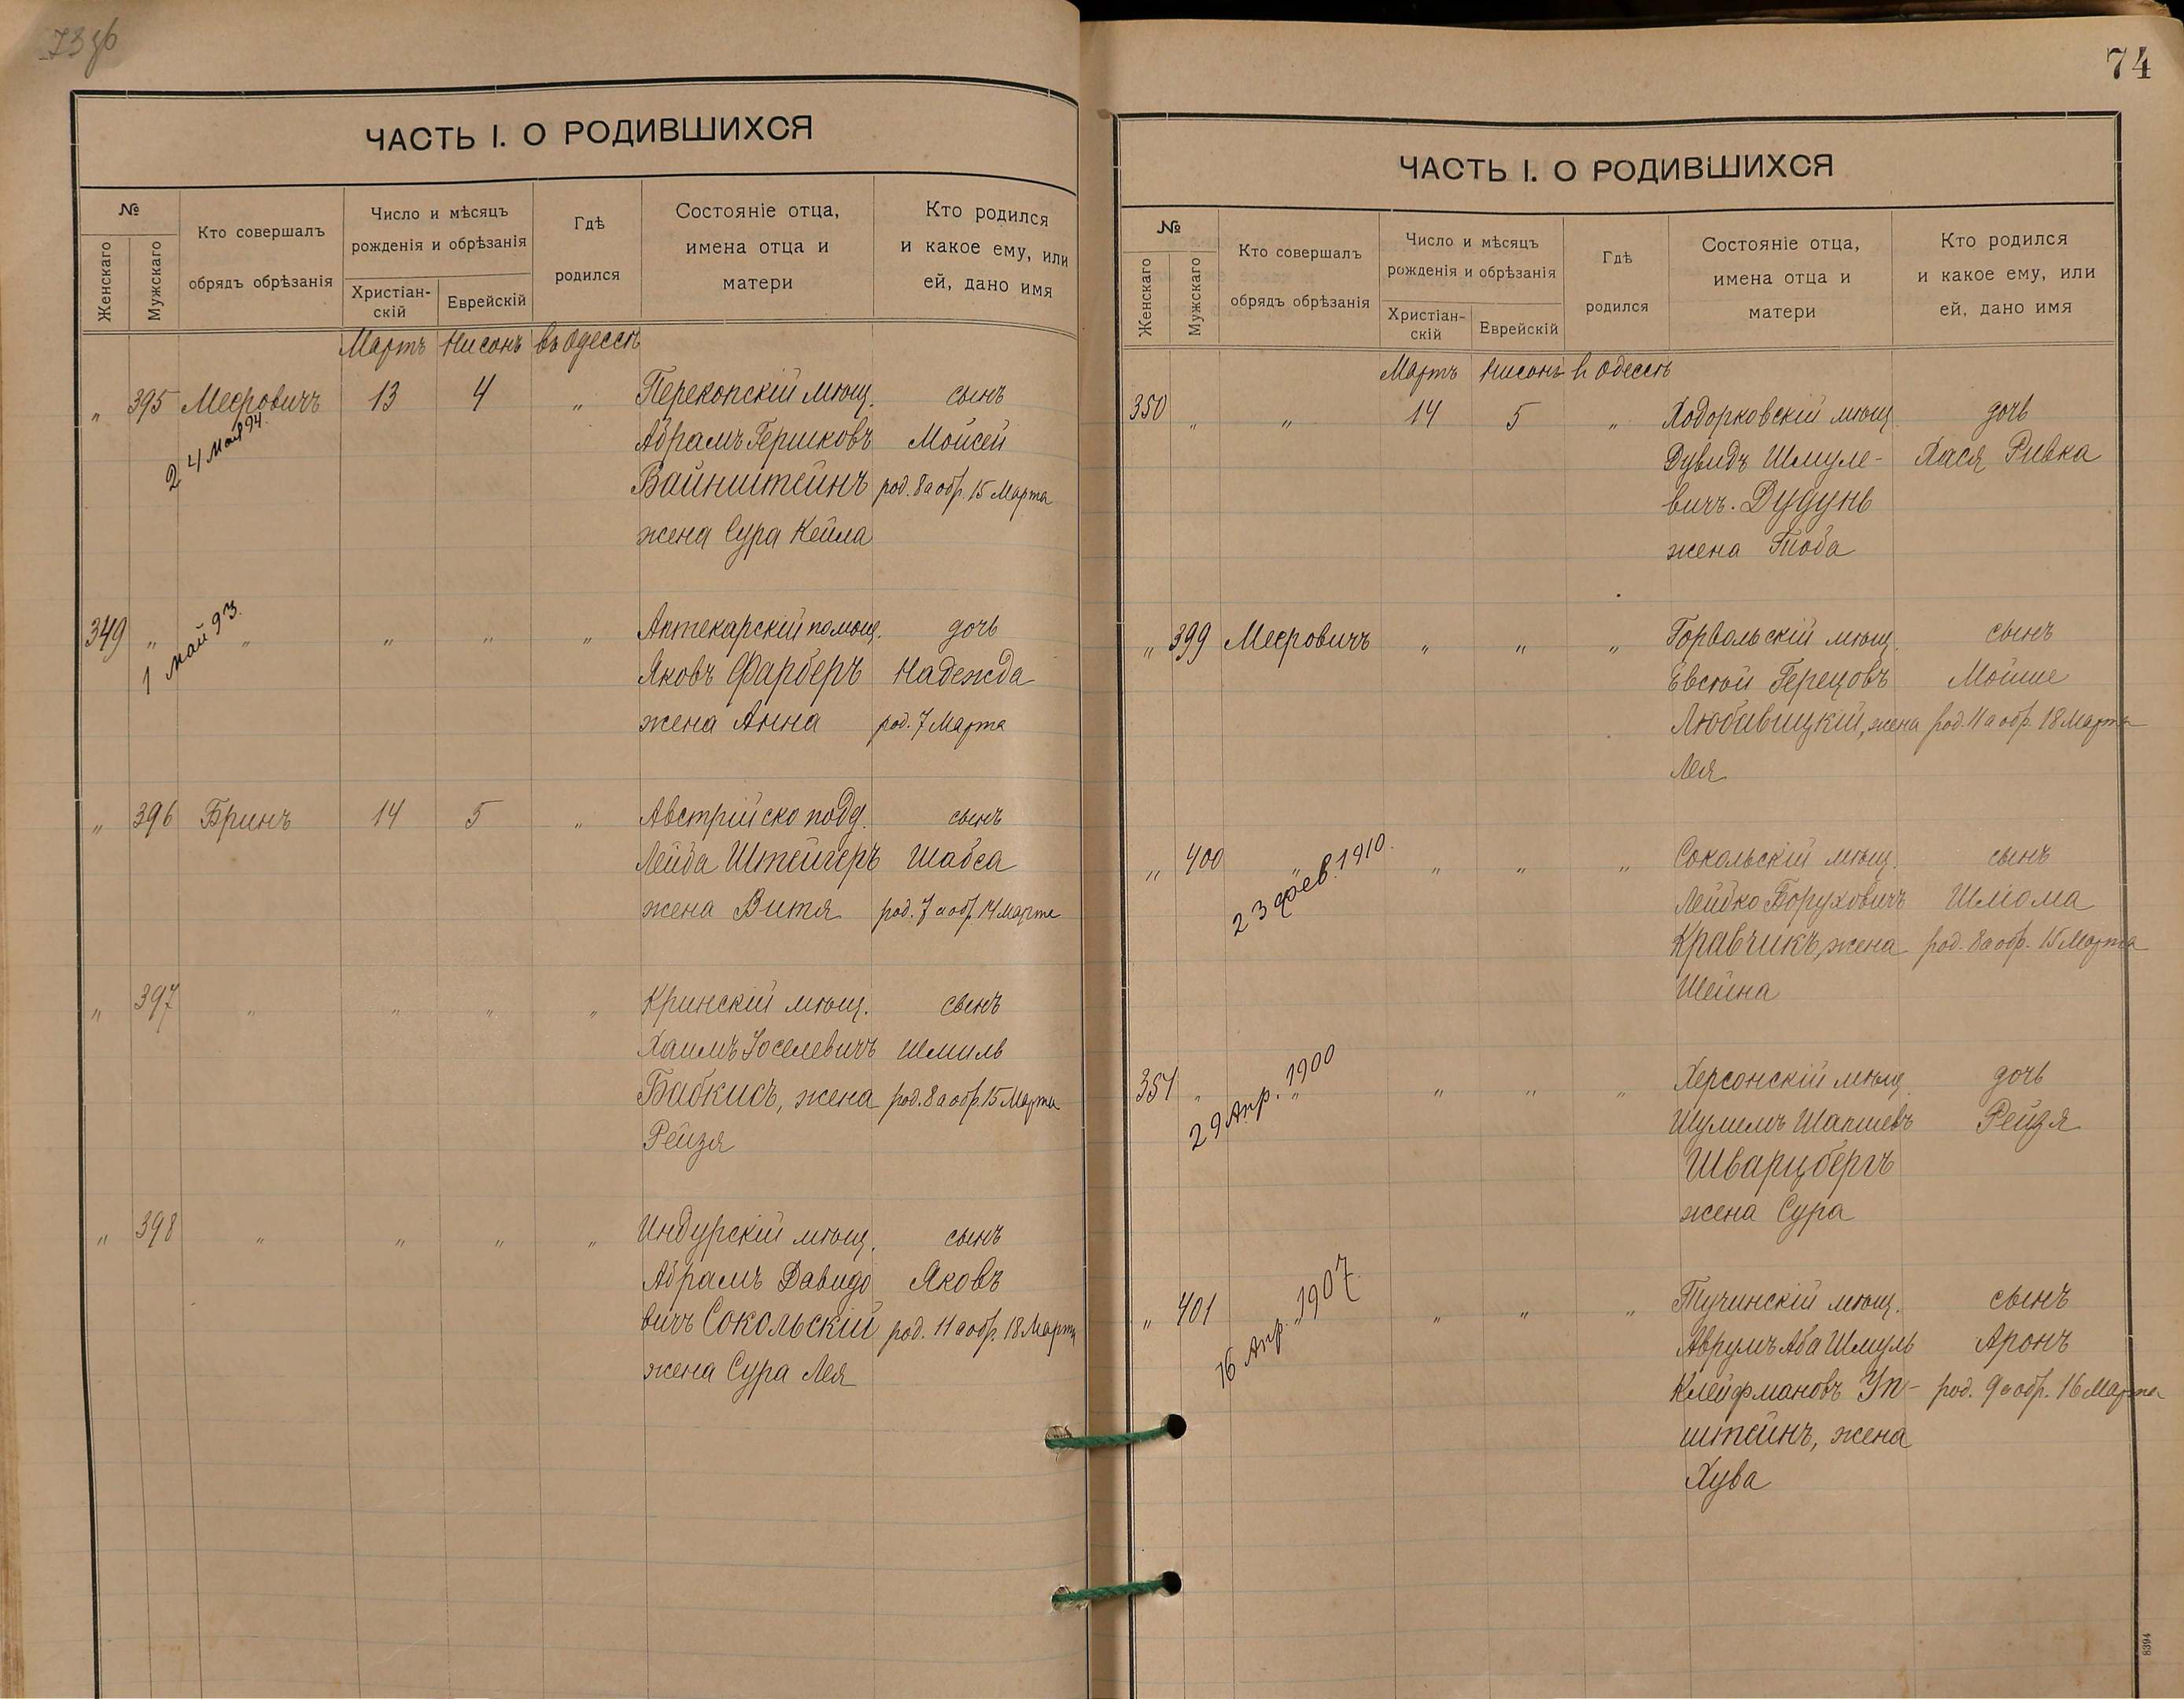 73 зб
ЧАСТЬ I. О РОДИВШИХСЯ
№
Женскаго
Мужскаго
Кто совершалъ
обрядъ обрѣзанія
Число и мѣсяцъ
рожденія и обрѣзанія
Христіан-
скій
Еврейскій
Гдѣ
родился
Состояніе отца,
имена отца и
матери
Кто родился
и какое ему, или
ей, дано имя
Мартъ Нисонъ въ Одессѣ
„ 395 Меєровичъ 13 4 „ Перекопскій мѣщ. сынъ
24 май 94.
Абрамъ Гершковъ Мойсей
Вайнштейнъ род. 8 а обр. 15 Марта
жена Сура Кейла
349 „ „ „ „ „ Аптекарскій помощ. дочь
1 май 93.
Яковъ Фарберъ Надежда
жена Анна род. 7 Марта
„ 396 Бринъ 14 5 „ Австрійско подд. сынъ
Лейба Штейгеръ Шабса
жена Витя род. 7 а обр. 14 Марта
„ 397 „ „ „ „ Кринскій мѣщ. сынъ
Хаимъ Іоселевичъ Шмиль
Бабкисъ, жена род. 8 а обр. 15 Марта
Рейзя
„ 398 „ „ „ „ Индурскій мѣщ. сынъ
Абрамъ Давидо Яковъ
вичъ Сокольскій род. 11 а обр. 18 Марта
жена Сура Лея
74
ЧАСТЬ I. О РОДИВШИХСЯ
№
Женскаго
Мужскаго
Кто совершалъ
обрядъ обрѣзанія
Число и мѣсяцъ
рожденія и обрѣзанія
Христіан-
скій
Еврейскій
Гдѣ
родился
Состояніе отца,
имена отца и
матери
Кто родился
и какое ему, или
ей, дано имя
Мартъ Нисонъ в Одессѣ
350 „ „ 14 5 „ Ходорковскій мѣщ. дочь
Дувидъ Шмуле- Хася Ривка
вичъ. Дудунь
жена Тоба
„ 399 Меєровичъ „ „ „ Горвольскій мѣщ. сынъ
Евсгой Герецовъ Мойше
Любавицкій, жена род. 11 а обр. 18 Марта
Лея
„ 400 „ „ „ „ Сокольскій мѣщ. сынъ
23 фев. 1910.
Лейбко Боруховичъ Шлома
Кравчикъ, жена род. 8 а обр. 15 Марта
Шейна
351 „ „ „ „ „ Херсонскій мѣщ. дочь
29 Апр. 1900
Шулимъ Шапшевъ Рейзя
Шварцбергъ
жена Сура
„ 401 „ „ „ Тучинскій мѣщ. сынъ
16 Апр. 1907.
Аврумъ Аба Шмуль Аронъ
Клейфмановъ Уп- род. 9 а обр. 16 Марта
штейнъ, жена
Хува
8394